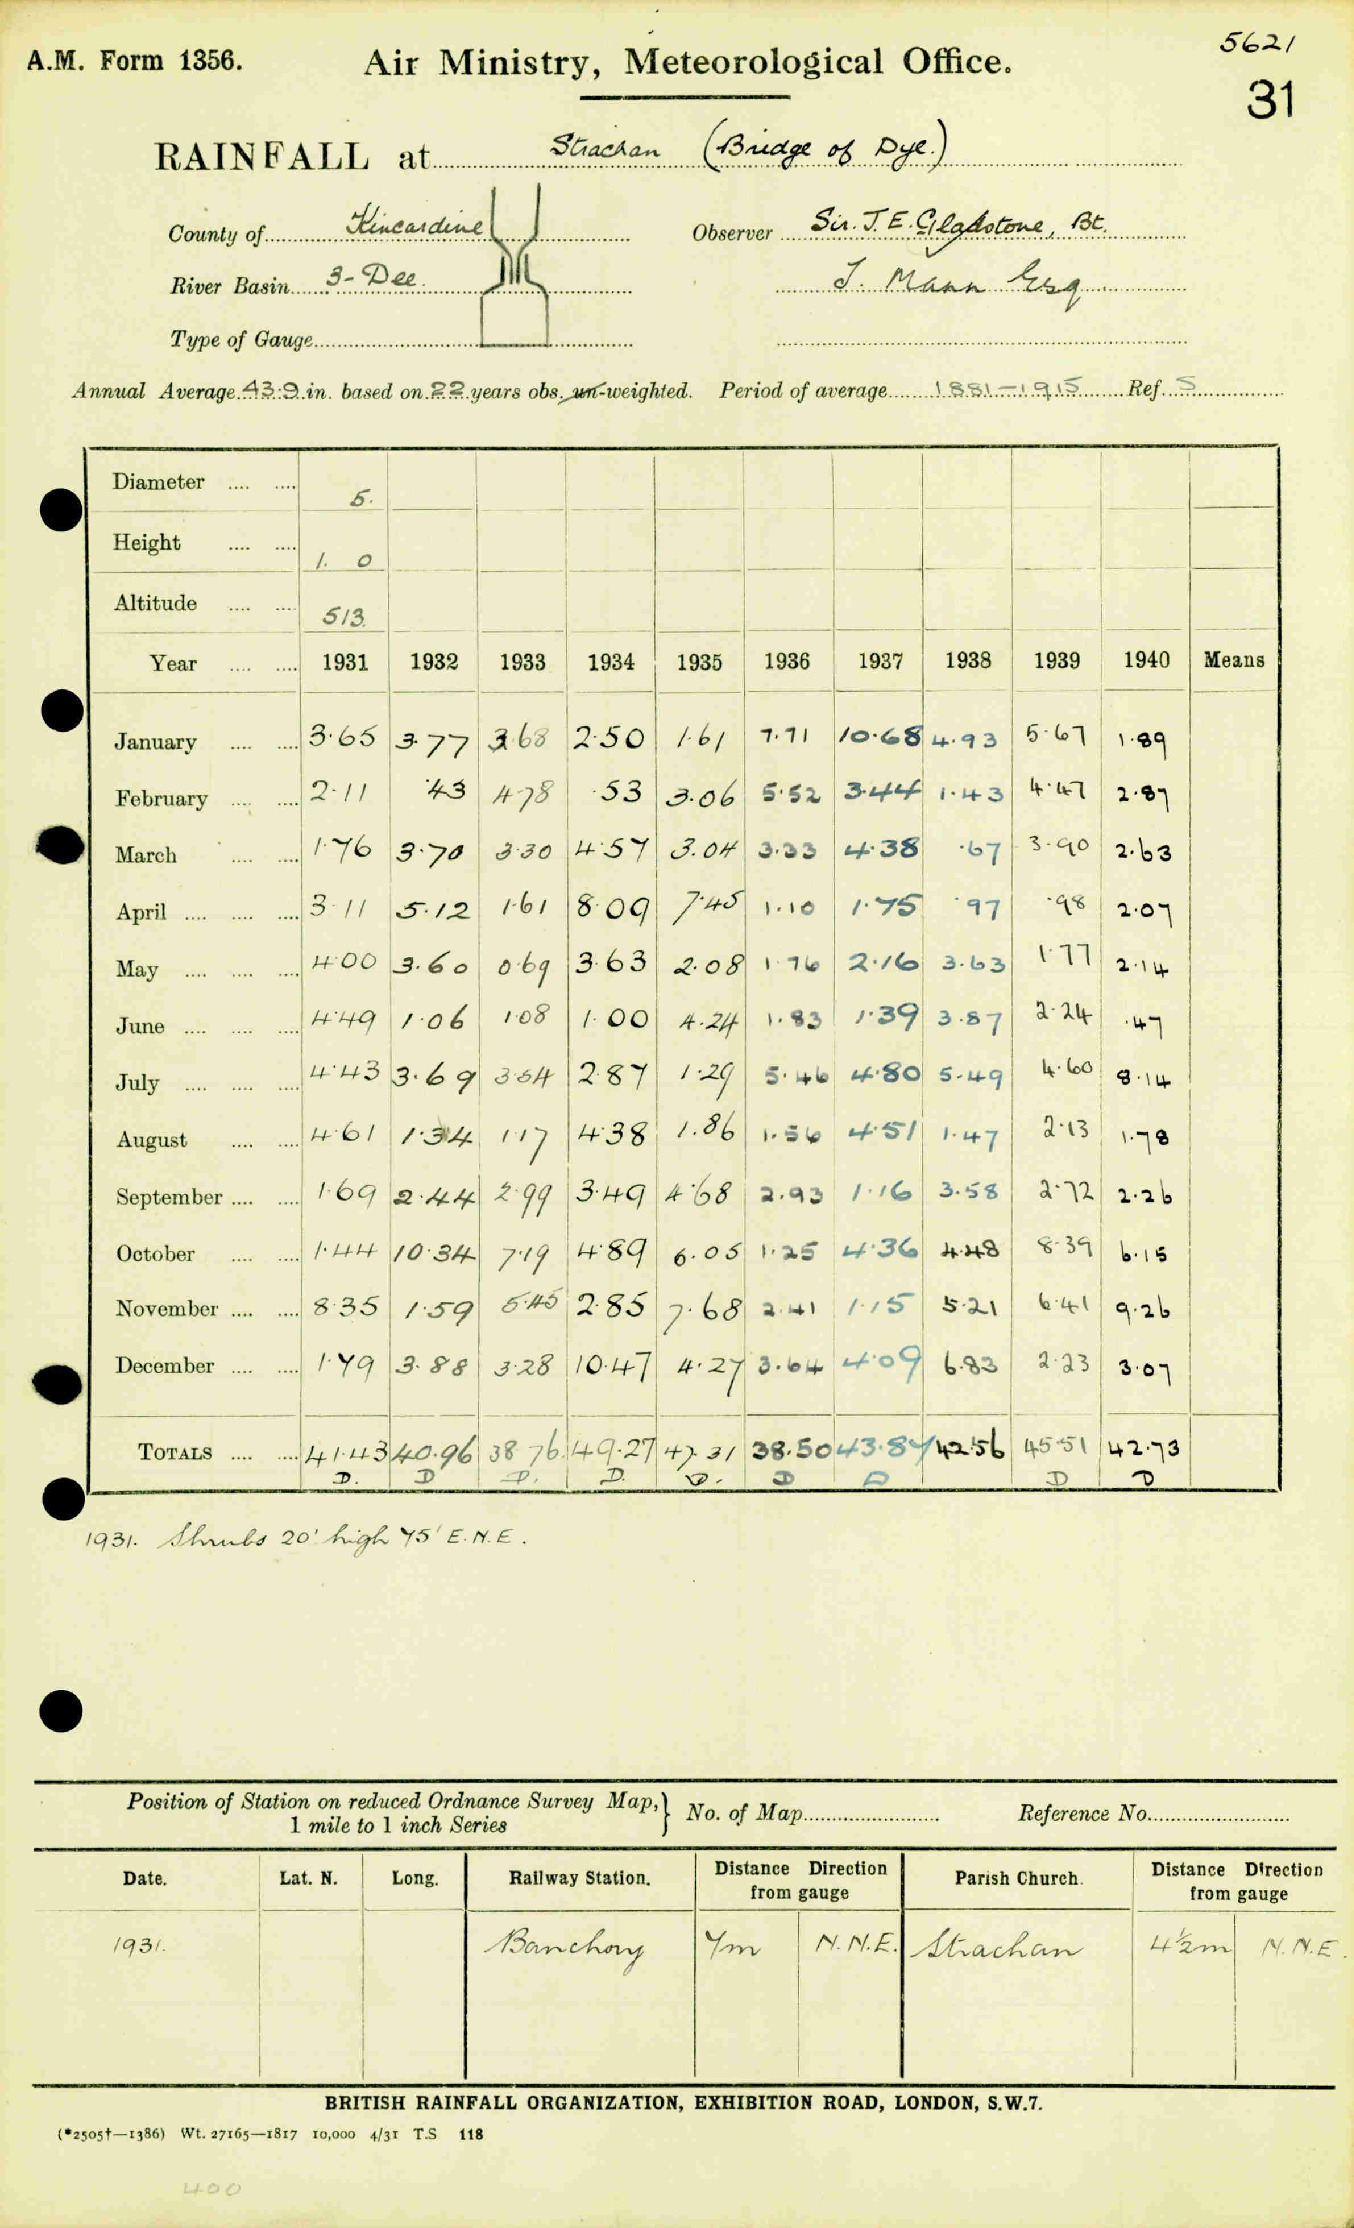 5621
A.M. Form 1356. Air Ministry, Meteorological Office.
31
RAINFALL at Strachan (Bridge of Dye.)
County of Kincardine Observer Sir. J. E. Gladstone, Bt.
River Basin 3-Dee. J. Mann Esq
Type of Gauge
Annual Average 43.9 in. based on 22 years obs. un-weighted. Period of average 1881-1915 Ref. S
Diameter .... .... 5.
Height .... .... 1. 0
Altitude .... .... 513
Year .... .... 1931 1932 1933 1934 1935 1936 1937 1938 1939 1940 Means
January .... .... 3.65 3.77 3.68 2.50 1.61 7.71 10.68 4.93 5.67 1.89
February .... .... 2.11 .43 4.78 .53 3.06 5.52 3.44 1.43 4.47 2.87
March .... .... 1.76 3.70 3.30 4.57 3.04 3.33 4.38 .67 3.90 2.63
April .... .... .... 3.11 5.12 1.61 8.09 7.45 1.10 1.75 .97 .98 2.07
May .... .... .... 4.00 3.60 0.69 3.63 2.08 1.76 2.16 3.63 1.77 2.14
June .... .... .... 4.49 1.06 1.08 1.00 4.24 1.83 1.39 3.87 2.24 .47
July .... .... .... 4.43 3.69 3.54 2.87 1.29 5.46 4.80 5.49 4.60 8.14
August .... .... 4.61 1.34 1.17 4.38 1.86 1.56 4.51 1.47 2.13 1.78
September .... .... 1.69 2.44 2.99 3.49 4.68 2.93 1.16 3.58 2.72 2.26
October .... .... 1.44 10.34 7.19 4.89 6.05 1.25 4.36 4.48 8.39 6.15
November .... .... 8.35 1.59 5.45 2.85 7.68 2.41 1.15 5.21 6.41 9.26
December .... .... 1.79 3.88 3.28 10.47 4.27 3.64 4.09 6.83 2.23 3.07
TOTALS .... .... 41.43 40.96 38.76 49.27 47.31 38.50 43.87 42.56 45.51 42.73
D. D D. D. D. D D D D
1931. Shrubs 20' high 75' E.N.E.
Position of Station on reduced Ordnance Survey Map, } No. of Map Reference No.
1 mile to 1 inch Series
Date. Lat. N. Long. Railway Station. Distance Direction from gauge Parish Church. Distance Direction from gauge
1931. Banchory 7m N.N.E. Strachan 4½m N.N.E.
BRITISH RAINFALL ORGANIZATION, EXHIBITION ROAD, LONDON, S.W.7.
(*2505†—1386) Wt. 27165—1817 10,000 4/31 T.S 118
400